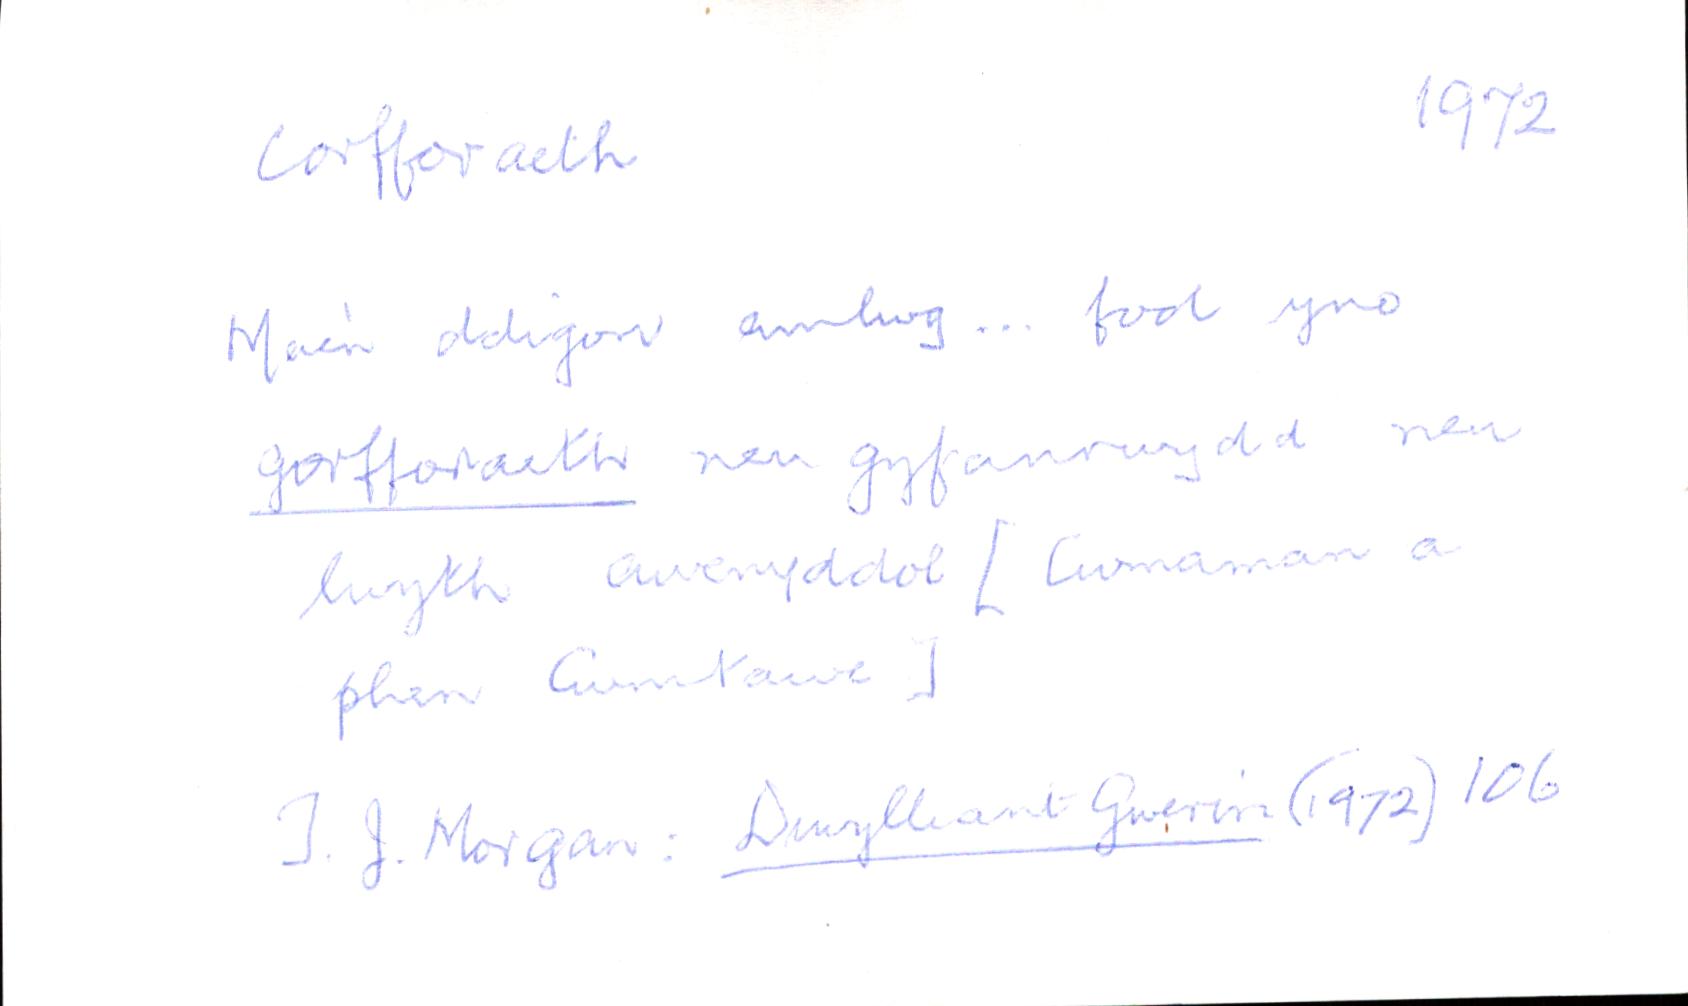 Corfforaeth 1972
Mae'n ddigon amlwg... fod yno
gorfforaeth neu gyfanrwydd neu
lwyth awenyddol [Cwmaman a
phen Cwmtawe]
T. J. Morgan: Diwylliant Gwerin (1972) 106